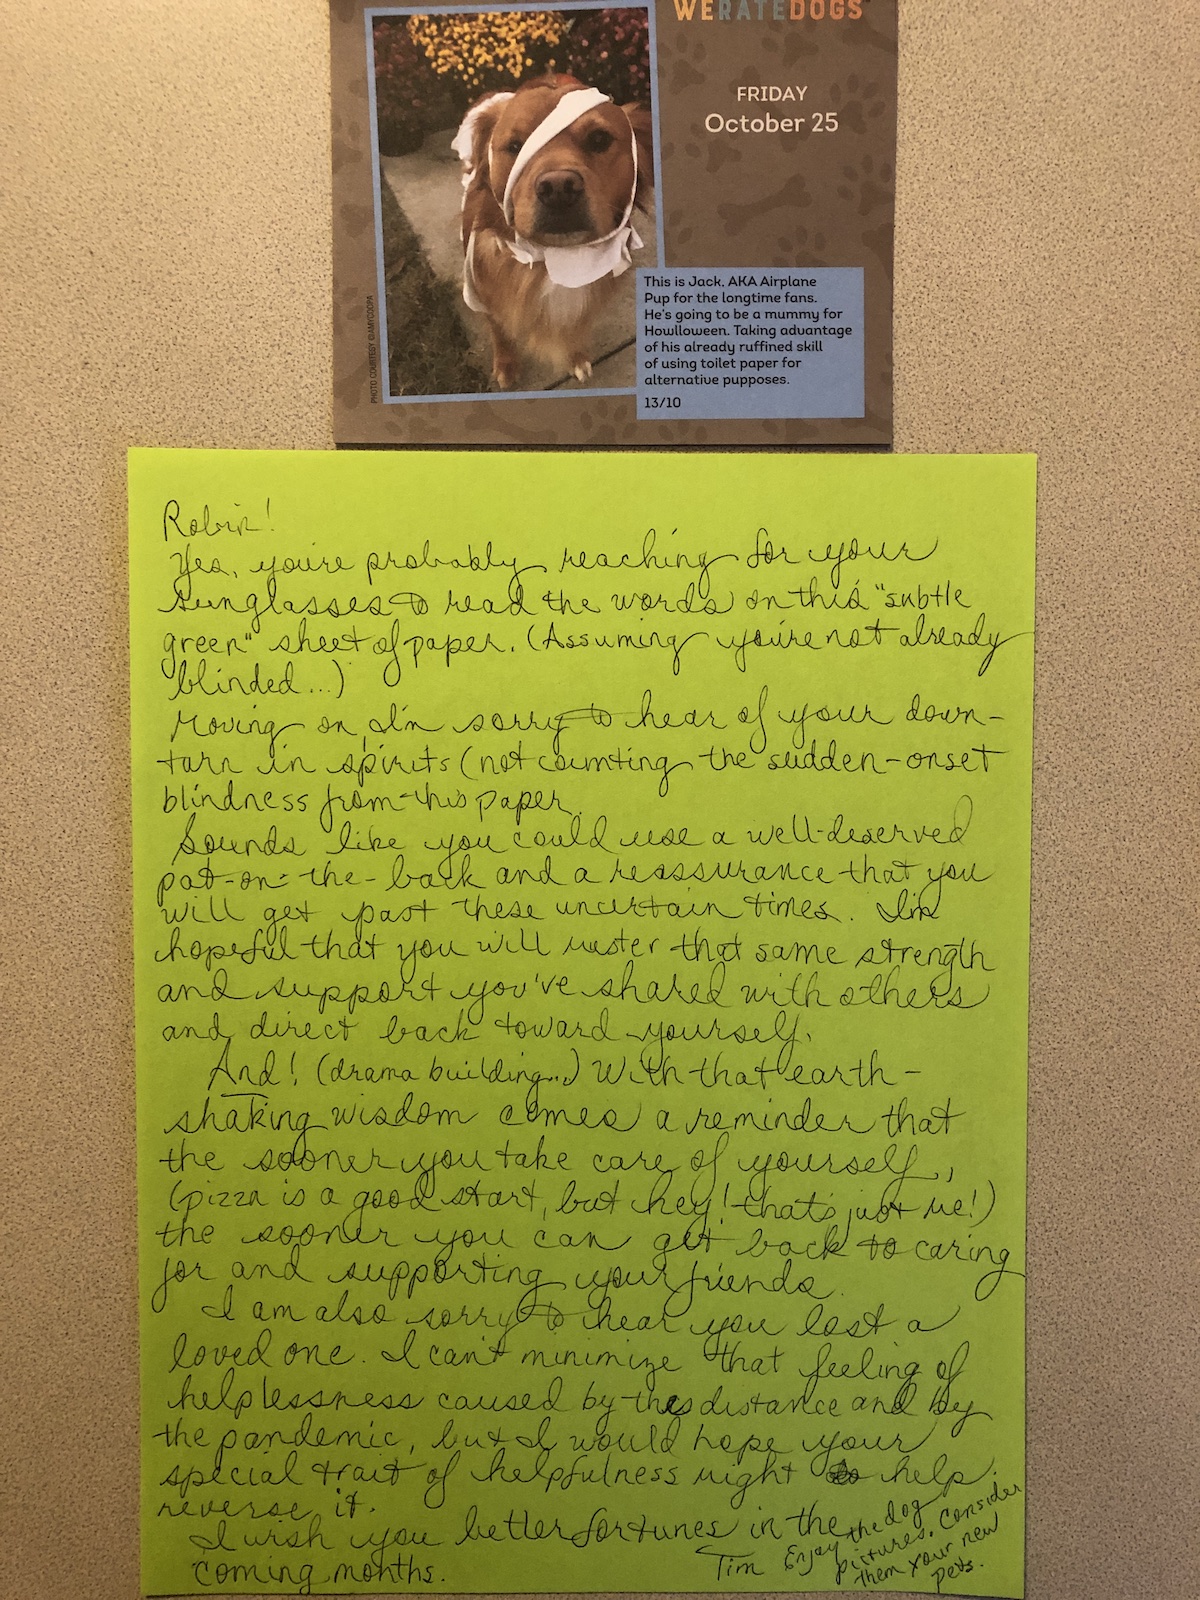 WERATEDOGS
FRIDAY
October 25
This is Jack, AKA Airplane
Pup for the longtime fans.
He's going to be a mummy for
Howlloween. Taking advantage
of his already ruffined skill
of using toilet paper for
alternative pupposes.
13/10
PHOTO COURTESY @AMYCOOPA
Robin!
Yes, you're probably reaching for your
sunglasses to read the words on this "subtle
green" sheet of paper. (Assuming you're not already
blinded...)
Moving on, I'm sorry to hear of your down-
turn in spirits (not counting the sudden-onset
blindness from this paper.
Sounds like you could use a well-deserved
pat-on-the-back and a reassurance that you
will get past these uncertain times. I'm
hopeful that you will muster that same strength
and support you've shared with others
and direct back toward yourself.
And! (drama building...) With that earth-
shaking wisdom comes a reminder that
the sooner you take care of yourself,
(pizza is a good start, but hey! that's just me!)
the sooner you can get back to caring
for and supporting your friends.
I am also sorry to hear you lost a
loved one. I can't minimize that feeling of
helplessness caused by the distance and by
the pandemic, but I would hope your
special trait of helpfulness might help
reverse it.
I wish you better fortunes in the
coming months.
Tim
Enjoy the dog
pictures. Consider
them your new
pets.